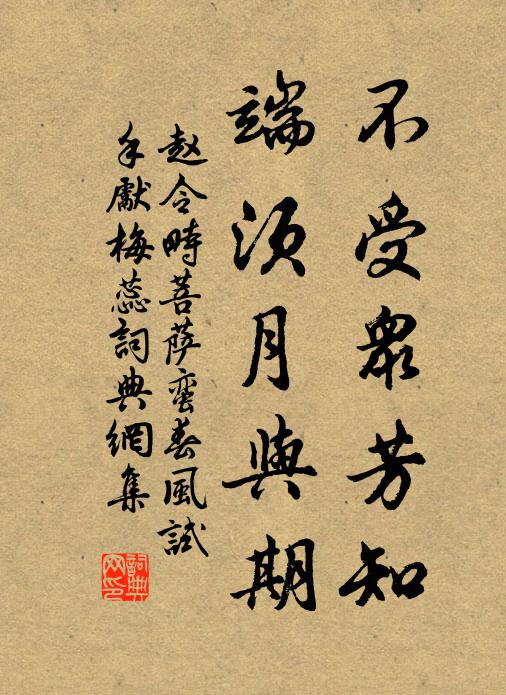 不受眾芳知
端須月與期
赵令畤菩薩蛮春風試
手獻梅蕊詞典網集
詞典
网印